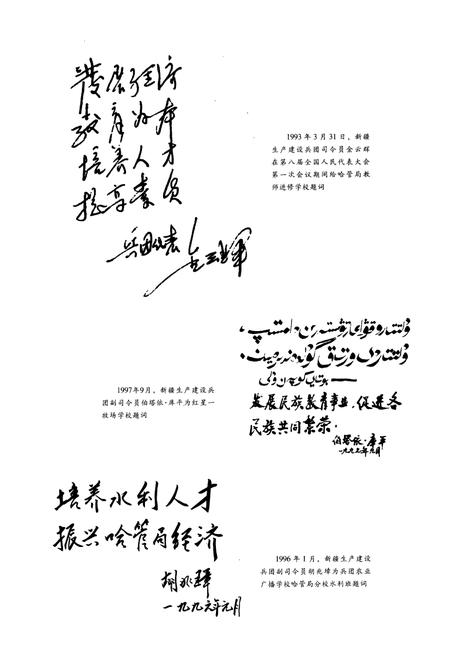 发展经济
教育为本
培养人才
提高素质
兵团代表 金云辉
1993 年 3 月 31 日，新疆
生产建设兵团司令员金云辉
在第八届全国人民代表大会
第一次会议期间给哈管局教
师进修学校题词
发展民族教育事业，促进各
民族共同繁荣。
伯塔依·库平
1997年9月，新疆生产建设兵
团副司令员伯塔依·库平为红星一
牧场学校题词
培养水利人才
振兴哈管局经济
胡兆璋
一九九六年元月
1996 年 1 月，新疆生产建设
兵团副司令员胡兆璋为兵团农业
广播学校哈管局分校水利班题词